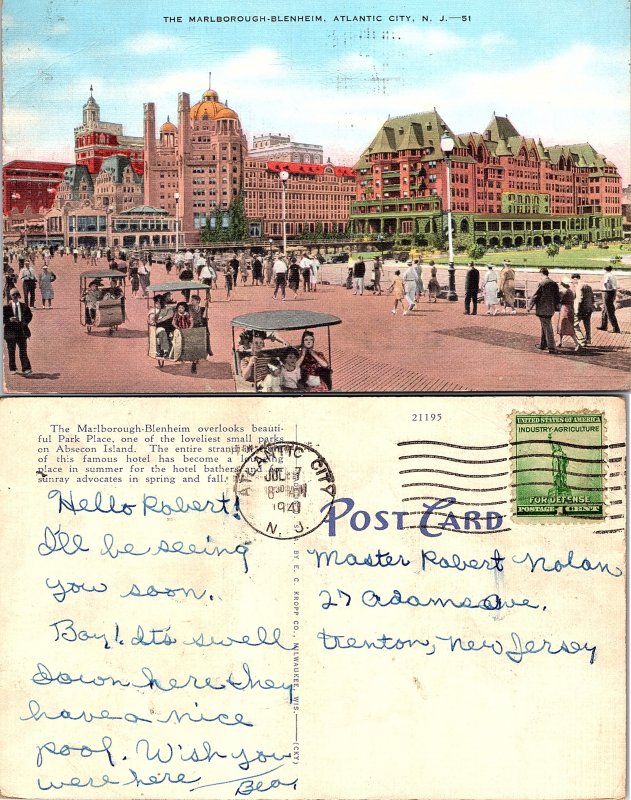 THE MARLBOROUGH-BLENHEIM, ATLANTIC CITY, N. J.—51
The Marlborough-Blenheim overlooks beauti-
ful Park Place, one of the loveliest small parks
on Absecon Island. The entire
of this famous hotel has become a
place in summer for the hotel bathers and
sunray advocates in spring and fall.
21195
ATLANTIC CITY
JUL 7
1941
N. J.
UNITED STATES OF AMERICA
INDUSTRY-AGRICULTURE
FOR DEFENSE
POSTAGE 1 CENT
POST CARD
Hello Robert!
I'll be seeing
you soon.
Boy! Its swell
down here they
have a nice
pool. Wish you
were here
Bea,
BY E. C. KROPP CO., MILWAUKEE, WIS.
(CKY)
Master Robert Nolan
27 Adams ave.
Trenton, New Jersey